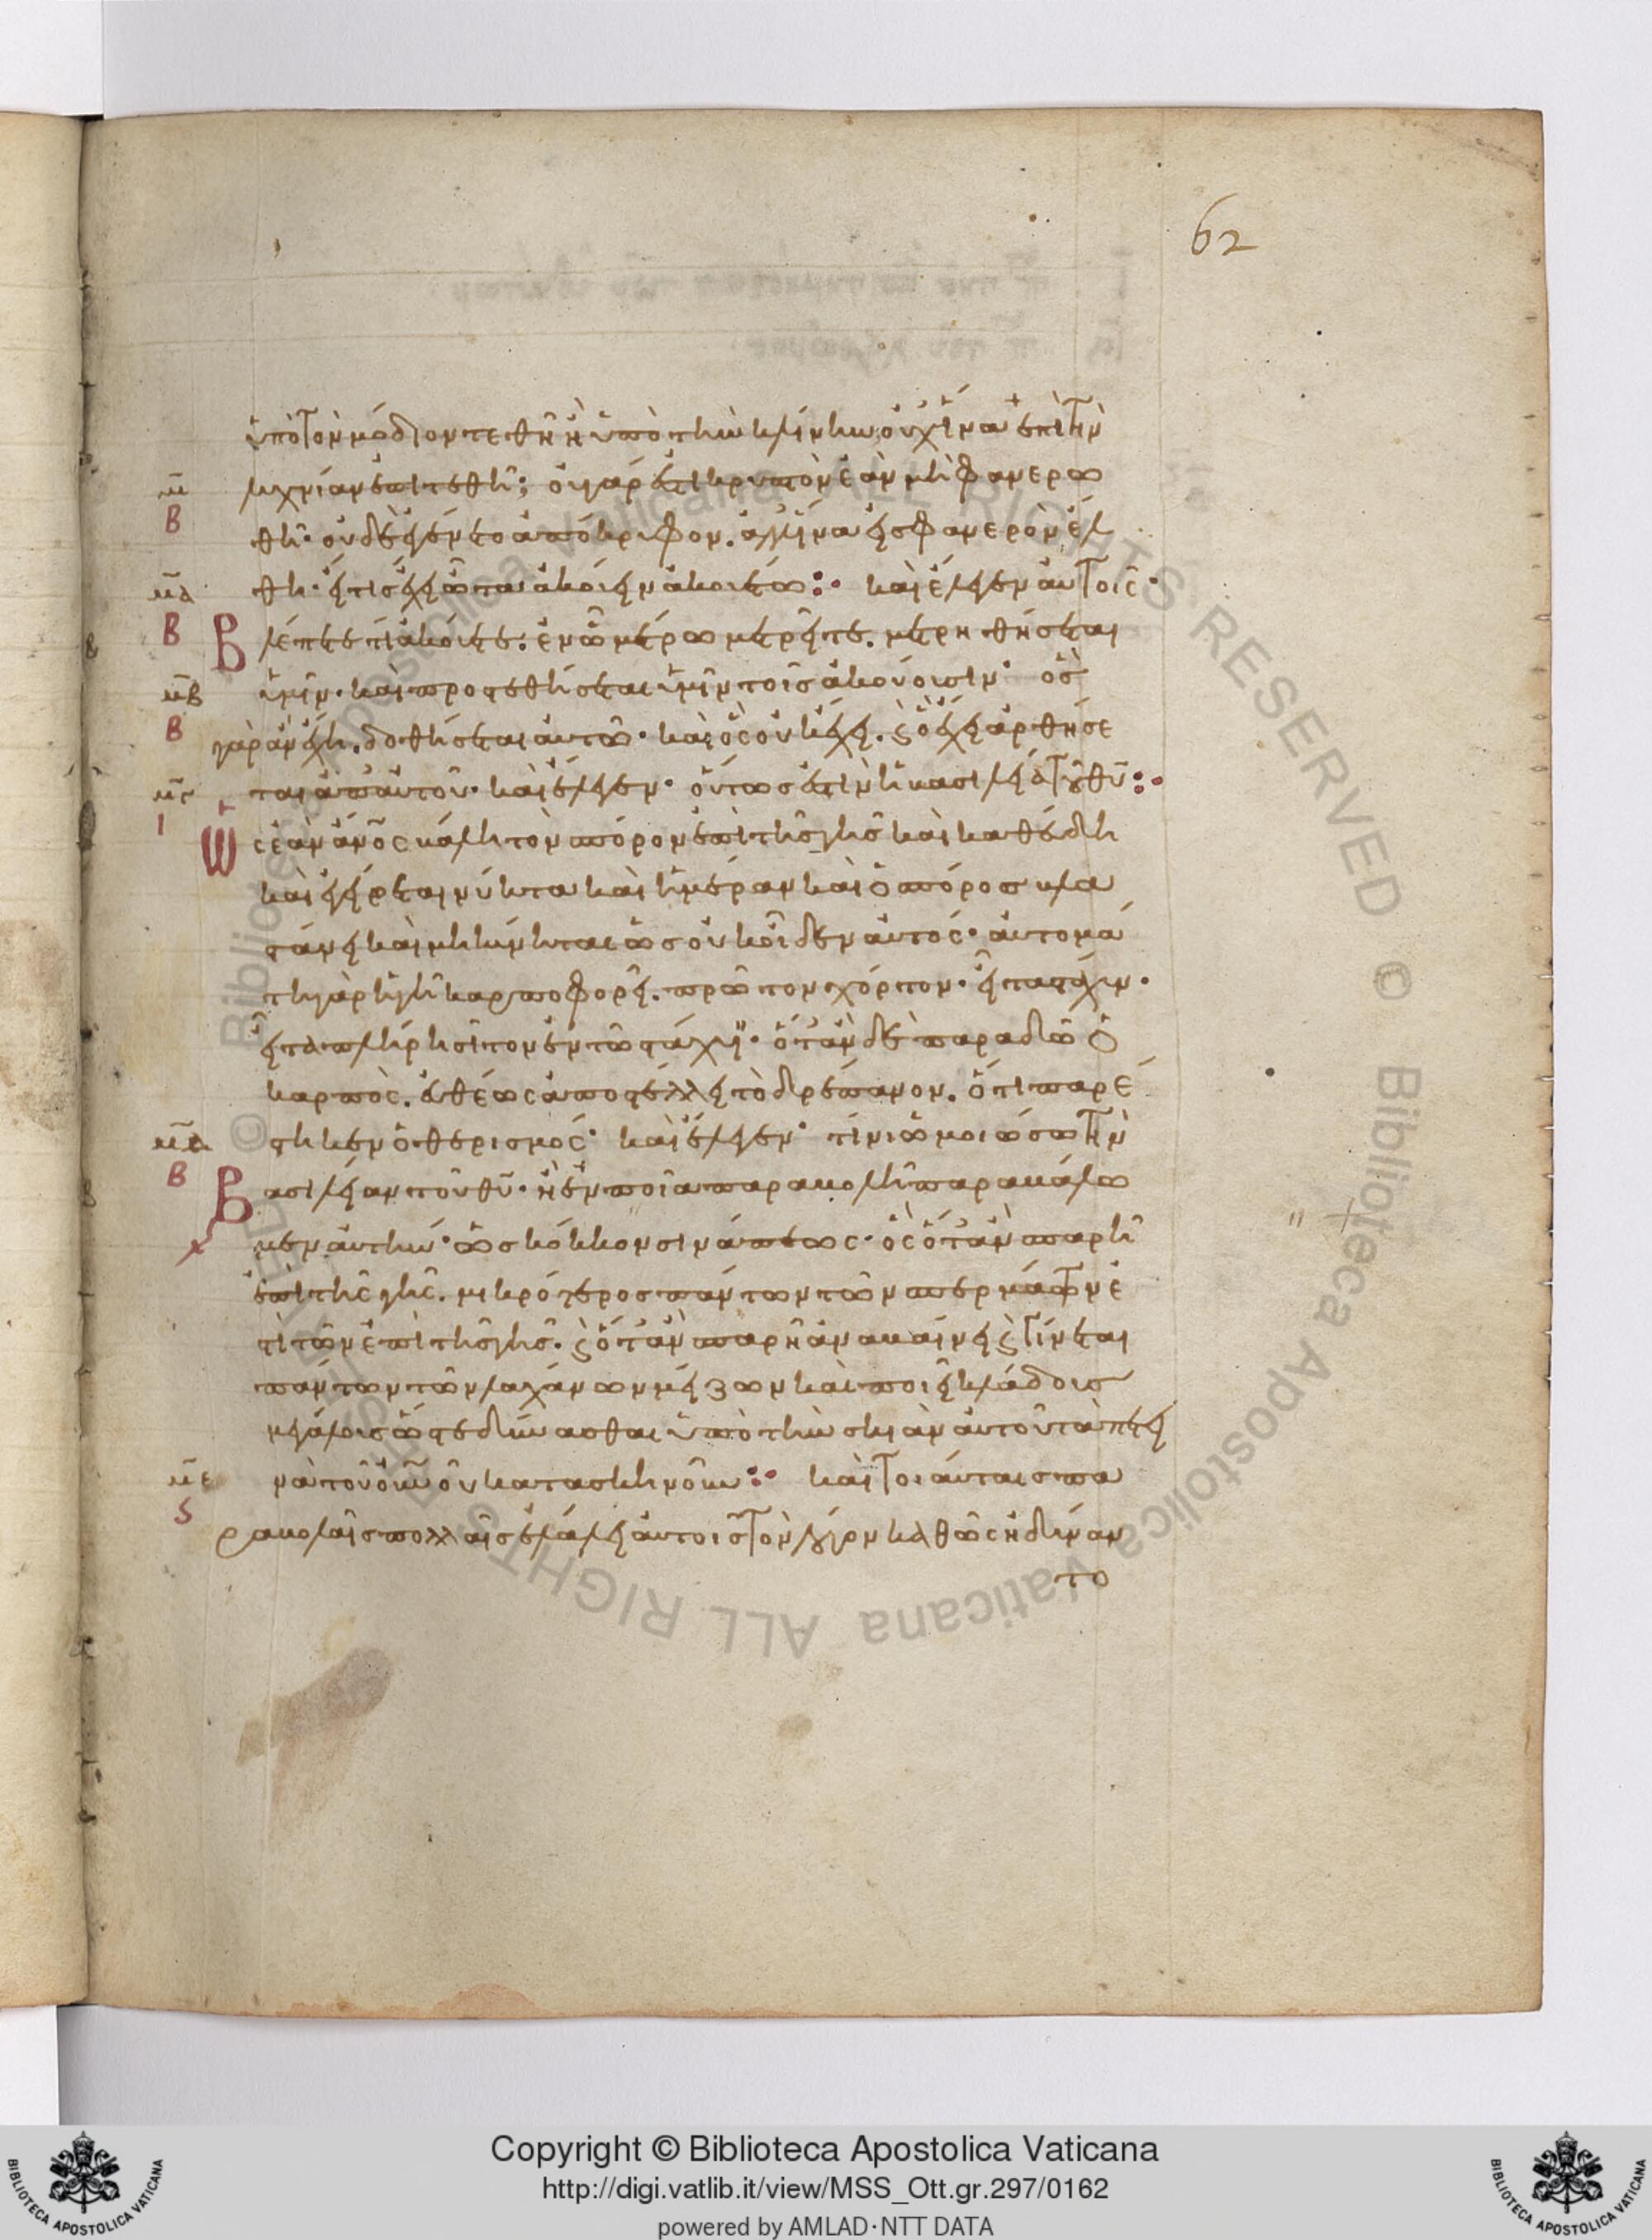 62
ὑπὸ τὸν μόδιον τεθῆ ἢ ὑπὸ τὴν κλίνην, οὐχ ἵνα ἐπὶ τὴν
μ λυχνίαν ἐπιτεθῆ; οὐ γάρ ἐστι κρυπτὸν ἐὰν μὴ φανερω
Β θῆ· οὐδὲ ἐγένετο ἀπόκρυφον. ἀλλ' ἵνα εἰς φανερὸν ἔλ
μα θη· εἴ τις ἔχει ὦτα ἀκούειν ἀκουέτω: καὶ ἔλεγεν αὐτοῖς·
Β Βλέπετε τί ἀκούετε: ἐν ὧ μέτρω μετρεῖτε. μετρηθήσεται
μβ ὑμῖν· καὶ προστεθήσεται ὑμῖν τοῖς ἀκούουσιν· ὃς
Β γὰρ ἂν ἔχη. δοθήσεται αὐτῶ· καὶ ὃς οὐκ ἔχει. καὶ ὃ ἔχει ἀρθήσε
μγ ται ἀπ' αὐτοῦ· καὶ ἔλεγεν· οὕτως ἐστὶν ἡ βασιλεία τοῦ θυ:
Ι Ὡς ἐὰν ἀνος βάλη τὸν σπόρον ἐπὶ τῆς γῆς καὶ καθεύδη
καὶ ἐγείρεται νύκτα καὶ ἡμέραν καὶ ὁ σπόρος βλα
στάνει καὶ μηκύνηται ὡς οὐκ οἶδεν αὐτός· αὐτομά
τη γὰρ ἡ γῆ καρποφορεῖ. πρῶτον χόρτον· εἶτα στάχυν·
εἶτα πλήρη σῖτον ἐν τῶ στάχυϊ· ὅτ' ἂν δὲ παραδῶ ὁ
καρπὸς. εὐθέως ἀποστέλλει τὸ δρέπανον. ὅτι παρέ
μδ στηκεν ὁ θερισμός· καὶ ἔλεγεν· τίνι ὁμοιώσω τὴν
Β Βασιλείαν τοῦ θυ· ἢ ἐν ποία παραβολῆ παραβάλω
μεν αὐτήν· ὡς κόκκον σινάπεως· ὃς ὅτ' ἂν σπαρῆ
ἐπὶ τῆς γῆς. μικρότερος πάντων τῶν σπερμάτων ἐ
στὶ τῶν ἐπὶ τῆς γῆς· καὶ ὅτ' ἂν σπαρῆ ἀναβαίνει καὶ γίνεται
πάντων τῶν λαχάνων μείζων καὶ ποιεῖ κλάδους
μεγάλους ὥστε δύνασθαι ὑπὸ τὴν σκιὰν αὐτοῦ τὰ πετει
με νὰ τοῦ οὐνοῦ κατασκηνοῦν: καὶ τοιαύταις πα
ς ραβολαῖς πολλαῖς ἐλάλει αὐτοῖς τὸν λόγον καθὼς ἠδύναν
το
Copyright © Biblioteca Apostolica Vaticana
http://digi.vatlib.it/view/MSS_Ott.gr.297/0162
powered by AMLAD·NTT DATA